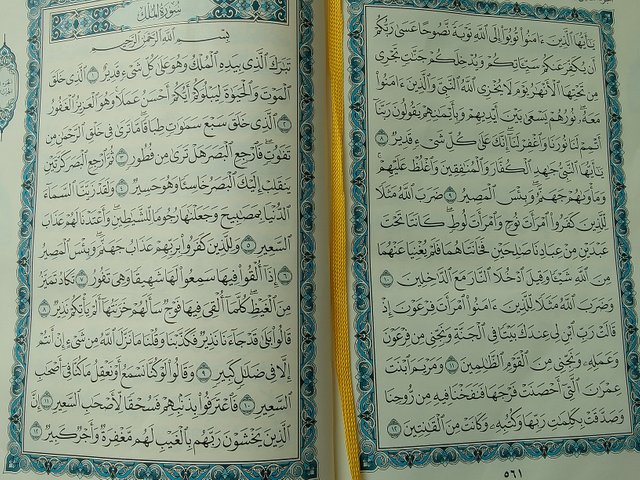 يَـٰٓأَيُّهَا ٱلَّذِينَ ءَامَنُوا۟ تُوبُوٓا۟ إِلَى ٱللَّهِ تَوْبَةً نَّصُوحًا عَسَىٰ رَبُّكُمْ
أَن يُكَفِّرَ عَنكُمْ سَيِّـَٔاتِكُمْ وَيُدْخِلَكُمْ جَنَّـٰتٍ تَجْرِى
مِن تَحْتِهَا ٱلْأَنْهَـٰرُ يَوْمَ لَا يُخْزِى ٱللَّهُ ٱلنَّبِىَّ وَٱلَّذِينَ ءَامَنُوا۟
مَعَهُۥ ۖ نُورُهُمْ يَسْعَىٰ بَيْنَ أَيْدِيهِمْ وَبِأَيْمَـٰنِهِمْ يَقُولُونَ رَبَّنَآ
أَتْمِمْ لَنَا نُورَنَا وَٱغْفِرْ لَنَآ ۖ إِنَّكَ عَلَىٰ كُلِّ شَىْءٍ قَدِيرٌ ٨
يَـٰٓأَيُّهَا ٱلنَّبِىُّ جَـٰهِدِ ٱلْكُفَّارَ وَٱلْمُنَـٰفِقِينَ وَٱغْلُظْ عَلَيْهِمْ ۚ
وَمَأْوَىٰهُمْ جَهَنَّمُ ۖ وَبِئْسَ ٱلْمَصِيرُ ٩ ضَرَبَ ٱللَّهُ مَثَلًا
لِّلَّذِينَ كَفَرُوا۟ ٱمْرَأَتَ نُوحٍ وَٱمْرَأَتَ لُوطٍ ۖ كَانَتَا تَحْتَ
عَبْدَيْنِ مِنْ عِبَادِنَا صَـٰلِحَيْنِ فَخَانَتَاهُمَا فَلَمْ يُغْنِيَا عَنْهُمَا
مِنَ ٱللَّهِ شَيْـًٔا وَقِيلَ ٱدْخُلَا ٱلنَّارَ مَعَ ٱلدَّٰخِلِينَ ١٠
وَضَرَبَ ٱللَّهُ مَثَلًا لِّلَّذِينَ ءَامَنُوا۟ ٱمْرَأَتَ فِرْعَوْنَ إِذْ
قَالَتْ رَبِّ ٱبْنِ لِى عِندَكَ بَيْتًا فِى ٱلْجَنَّةِ وَنَجِّنِى مِن فِرْعَوْنَ
وَعَمَلِهِۦ وَنَجِّنِى مِنَ ٱلْقَوْمِ ٱلظَّـٰلِمِينَ ١١ وَمَرْيَمَ ٱبْنَتَ
عِمْرَٰنَ ٱلَّتِىٓ أَحْصَنَتْ فَرْجَهَا فَنَفَخْنَا فِيهِ مِن رُّوحِنَا
وَصَدَّقَتْ بِكَلِمَـٰتِ رَبِّهَا وَكُتُبِهِۦ وَكَانَتْ مِنَ ٱلْقَـٰنِتِينَ ١٢
٥٦١
سُورَةُ المُلْكِ
بِسْمِ ٱللَّهِ ٱلرَّحْمَـٰنِ ٱلرَّحِيمِ
تَبَـٰرَكَ ٱلَّذِى بِيَدِهِ ٱلْمُلْكُ وَهُوَ عَلَىٰ كُلِّ شَىْءٍ قَدِيرٌ ١ ٱلَّذِى خَلَقَ
ٱلْمَوْتَ وَٱلْحَيَوٰةَ لِيَبْلُوَكُمْ أَيُّكُمْ أَحْسَنُ عَمَلًا ۚ وَهُوَ ٱلْعَزِيزُ ٱلْغَفُورُ
٢ ٱلَّذِى خَلَقَ سَبْعَ سَمَـٰوَٰتٍ طِبَاقًا ۖ مَّا تَرَىٰ فِى خَلْقِ ٱلرَّحْمَـٰنِ مِن
تَفَـٰوُتٍ ۖ فَٱرْجِعِ ٱلْبَصَرَ هَلْ تَرَىٰ مِن فُطُورٍ ٣ ثُمَّ ٱرْجِعِ ٱلْبَصَرَ كَرَّتَيْنِ
يَنقَلِبْ إِلَيْكَ ٱلْبَصَرُ خَاسِئًا وَهُوَ حَسِيرٌ ٤ وَلَقَدْ زَيَّنَّا ٱلسَّمَآءَ
ٱلدُّنْيَا بِمَصَـٰبِيحَ وَجَعَلْنَـٰهَا رُجُومًا لِّلشَّيَـٰطِينِ ۖ وَأَعْتَدْنَا لَهُمْ عَذَابَ
ٱلسَّعِيرِ ٥ وَلِلَّذِينَ كَفَرُوا۟ بِرَبِّهِمْ عَذَابُ جَهَنَّمَ ۖ وَبِئْسَ ٱلْمَصِيرُ
٦ إِذَآ أُلْقُوا۟ فِيهَا سَمِعُوا۟ لَهَا شَهِيقًا وَهِىَ تَفُورُ ٧ تَكَادُ تَمَيَّزُ
مِنَ ٱلْغَيْظِ ۖ كُلَّمَآ أُلْقِىَ فِيهَا فَوْجٌ سَأَلَهُمْ خَزَنَتُهَآ أَلَمْ يَأْتِكُمْ نَذِيرٌ ٨
قَالُوا۟ بَلَىٰ قَدْ جَآءَنَا نَذِيرٌ فَكَذَّبْنَا وَقُلْنَا مَا نَزَّلَ ٱللَّهُ مِن شَىْءٍ إِنْ أَنتُمْ
إِلَّا فِى ضَلَـٰلٍ كَبِيرٍ ٩ وَقَالُوا۟ لَوْ كُنَّا نَسْمَعُ أَوْ نَعْقِلُ مَا كُنَّا فِىٓ أَصْحَـٰبِ
ٱلسَّعِيرِ ١٠ فَٱعْتَرَفُوا۟ بِذَنۢبِهِمْ فَسُحْقًا لِّأَصْحَـٰبِ ٱلسَّعِيرِ ١١ إِنَّ
ٱلَّذِينَ يَخْشَوْنَ رَبَّهُم بِٱلْغَيْبِ لَهُم مَّغْفِرَةٌ وَأَجْرٌ كَبِيرٌ ١٢